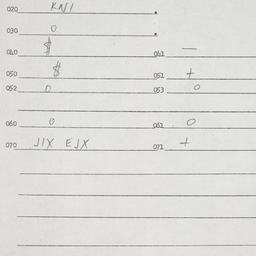 020 KN1
030 0
040 $ 041 —
050 $ 051 +
052 0 053 0
060 0 061 0
070 JIX EJX 071 +